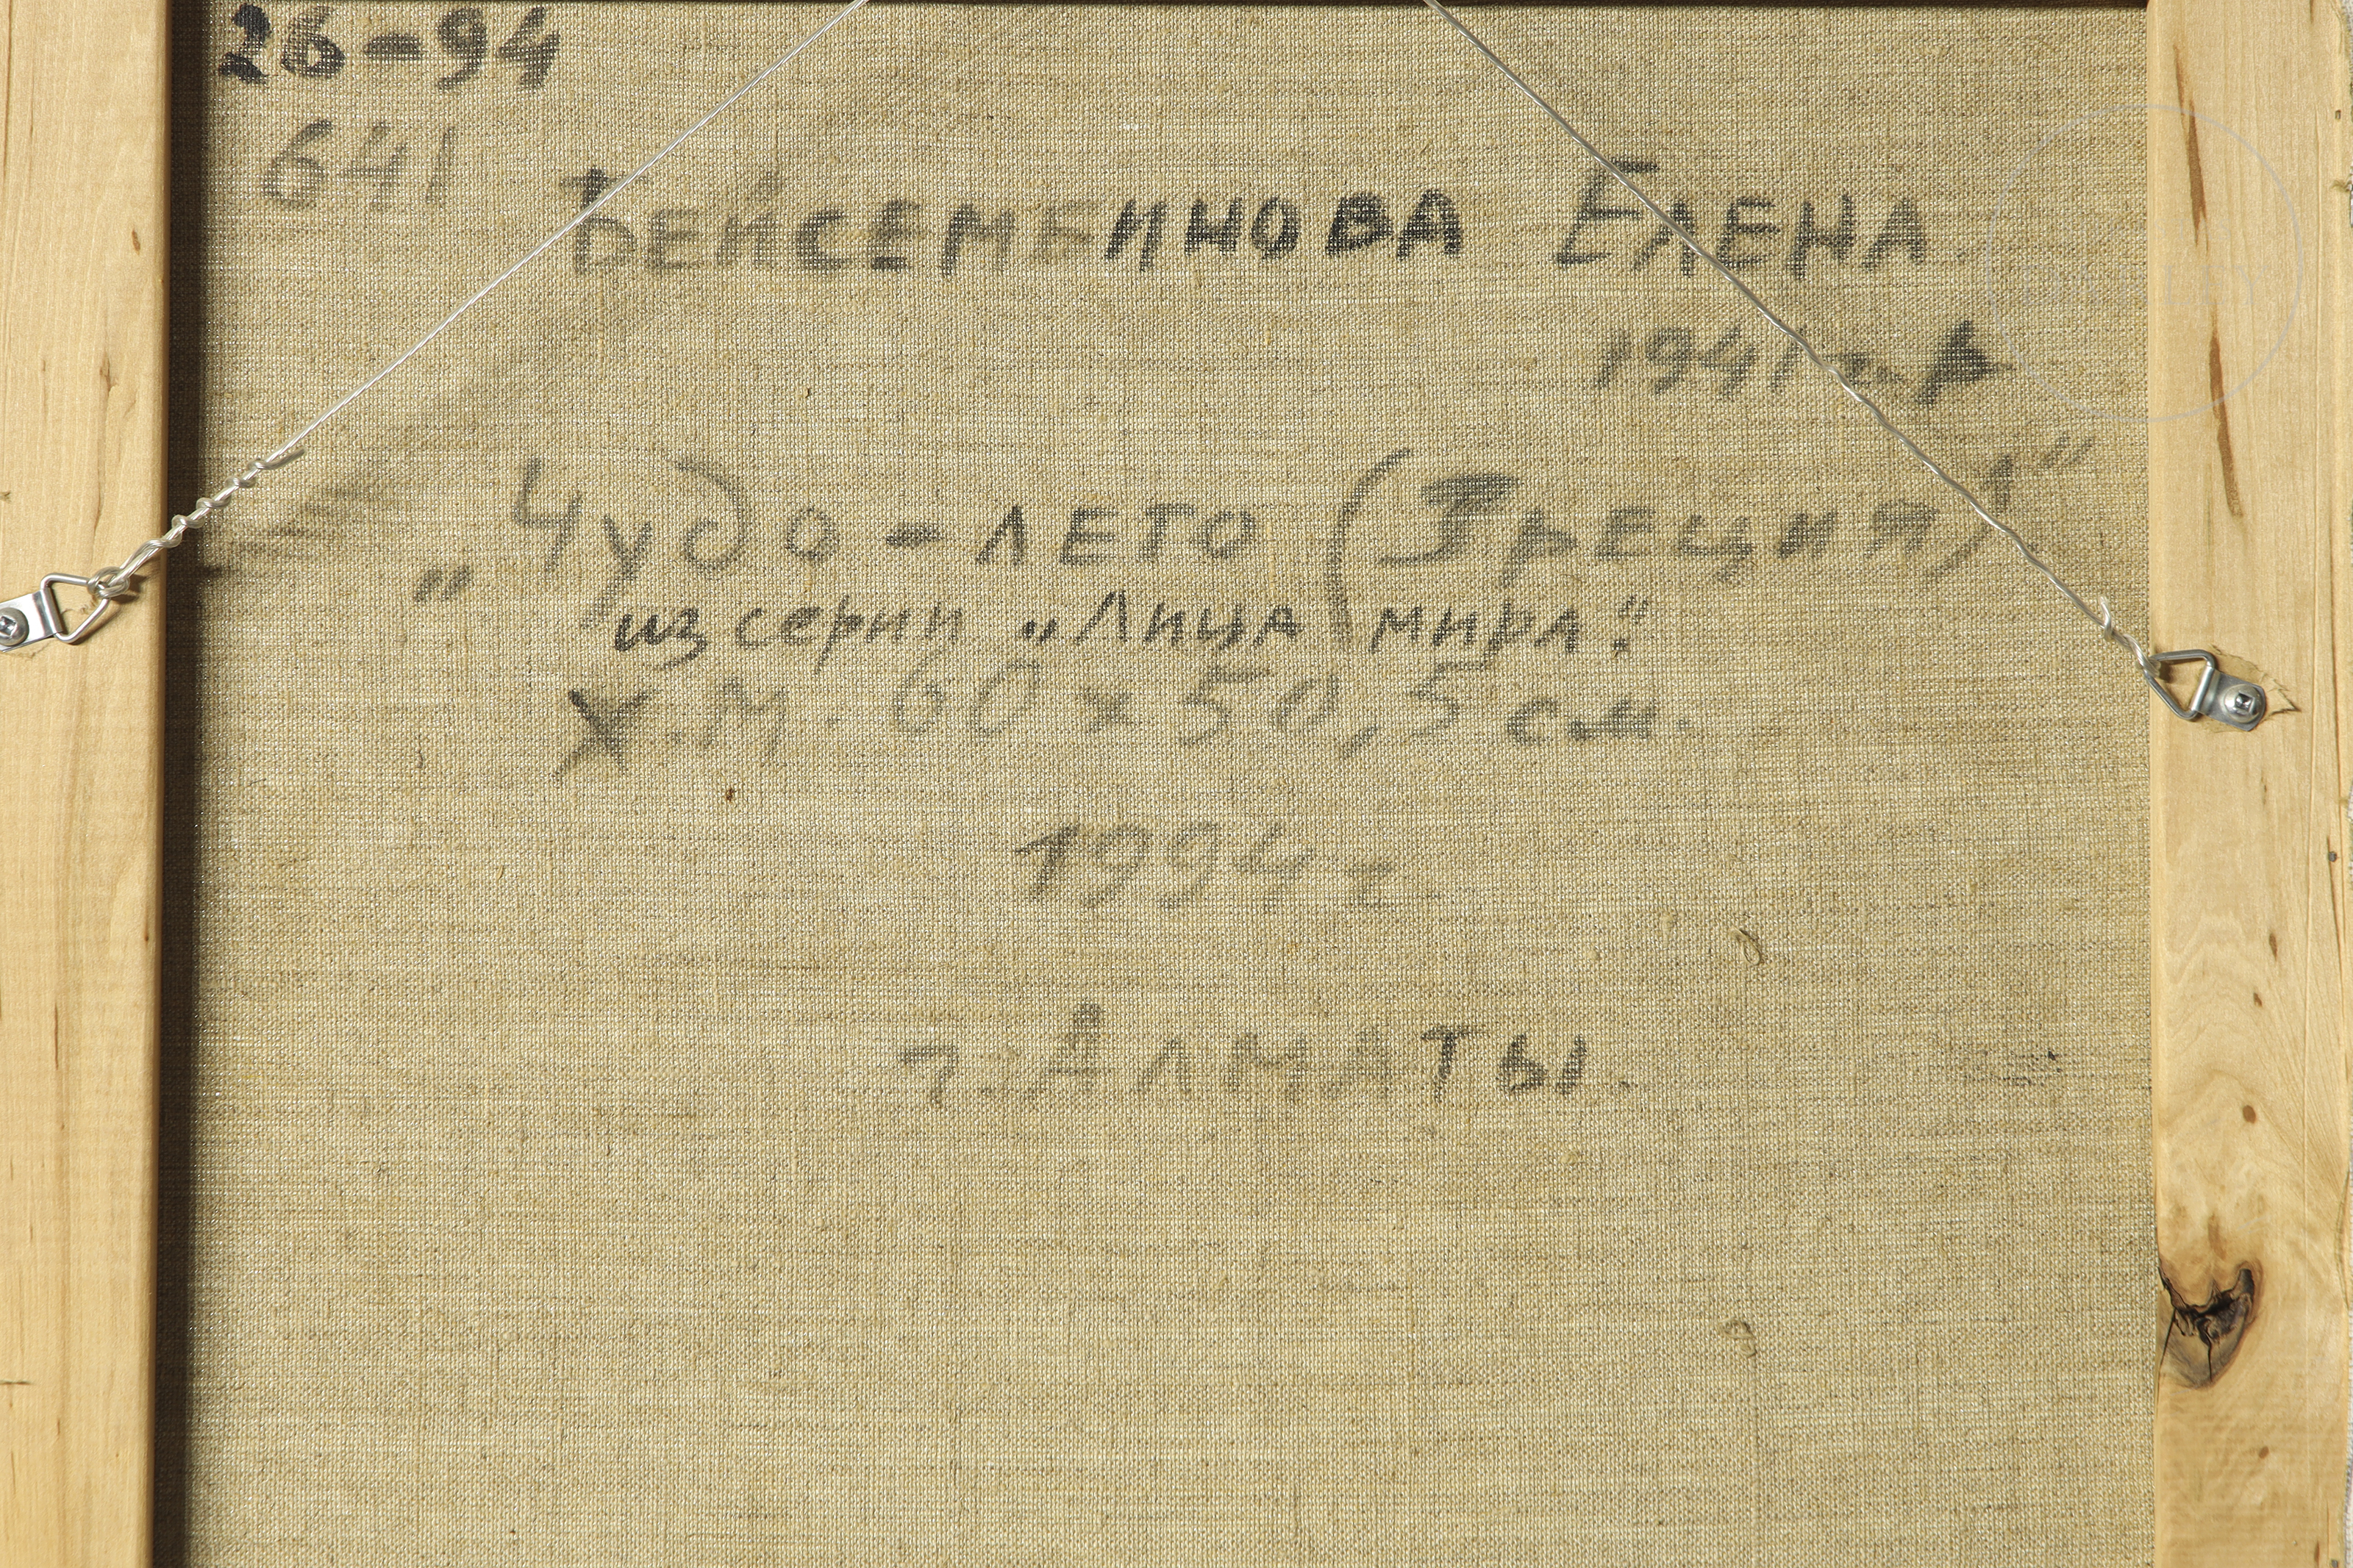 26-94
641
Бейсембинова Елена
1941 г. р
"Чудо-лето (Греция)"
из серии „Лица мира"
Х.М. 60 х 50,5 см.
1994 г
г. Алматы.